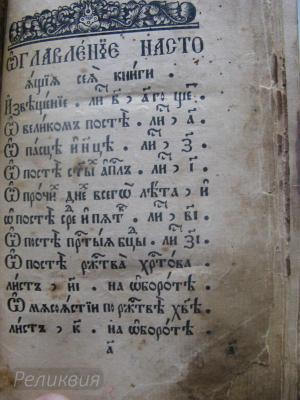 Ѡглавле́нїе насто
ѧщїѧ сеѧ̀ книги .
Ѡ великомъ постѣ̀ . ли́ , а҃ .
Ѡ пасцѣ
Ѡ постѣ ст҃ы́ а҆пⷭ҇лъ . ли́ , і҃ .
Ѡ прочи́ дне́ всегѡ̀ лѣ́та , и҆
ѡ постѣ сре и҆ пѧт . ли́ , в҃і .
Ѡ постѣ пр҃ты́ѧ бцы . ли , з҃і
Ѡ постѣ ржⷭ҇тва̀ хрⷭ҇то́ва
ли́стъ , и҃і . на ѡ҆боро́тѣ
Ѡ мѧсоѧ́стїи по ржⷭ҇твѣ̀ хв҃ѣ
ли́стъ , к҃ . на ѡ҆боро́тѣ
а҃
Реликвия